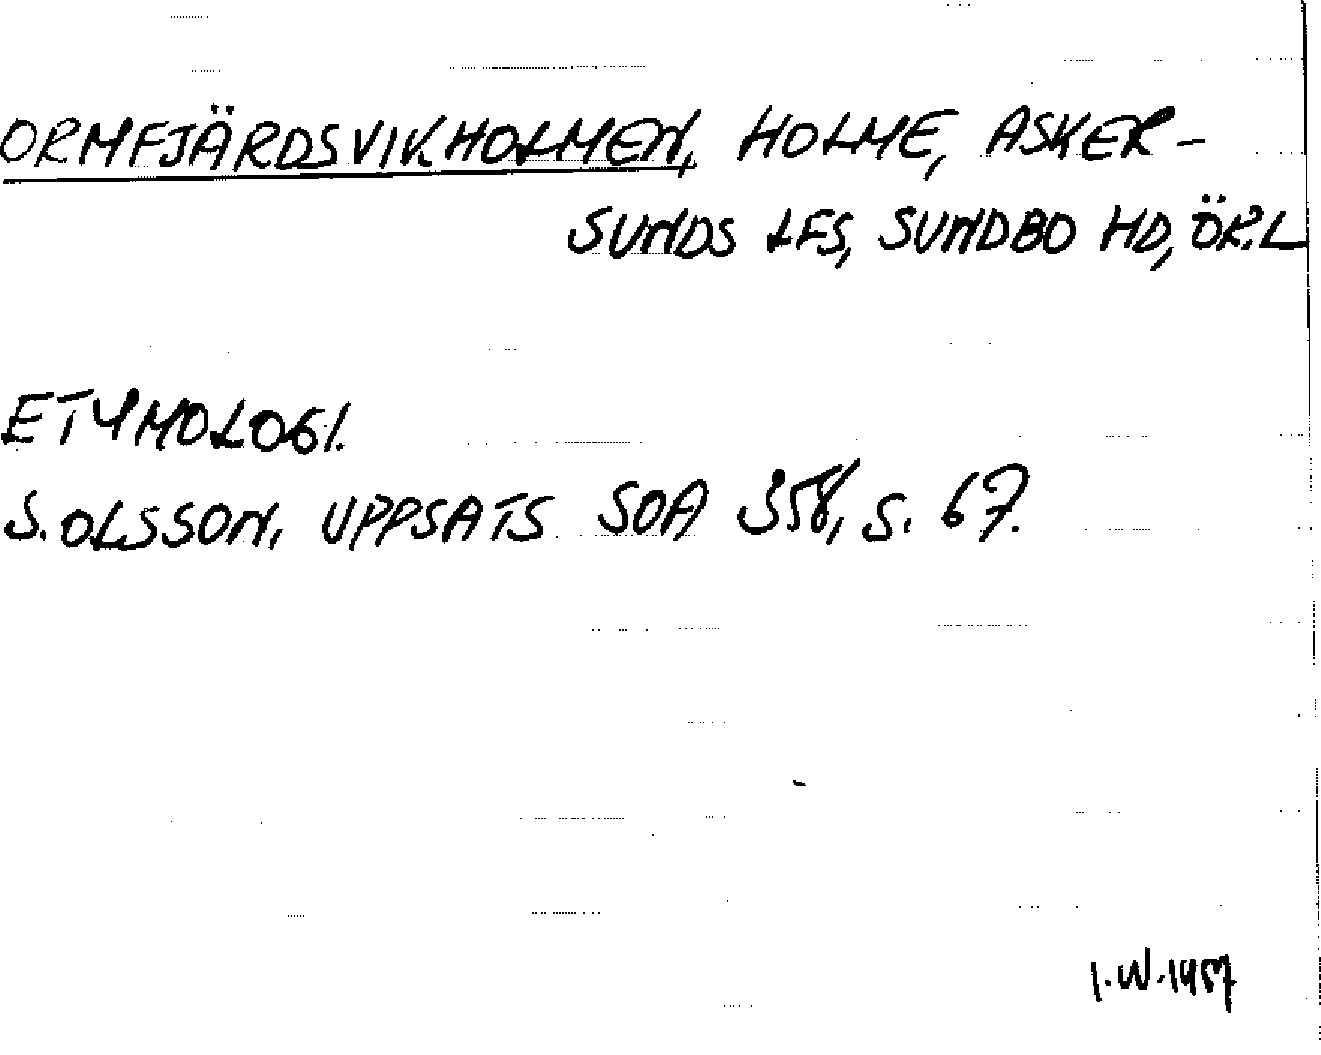 ORMFJÄRDSVIKHOLMEN, HOLME, ASKER-
SUNDS LFS, SUNDBO HD, ÖR.L
ETYMOLOGI.
S. OLSSON, UPPSATS SOA 358, S. 67.
I.W.